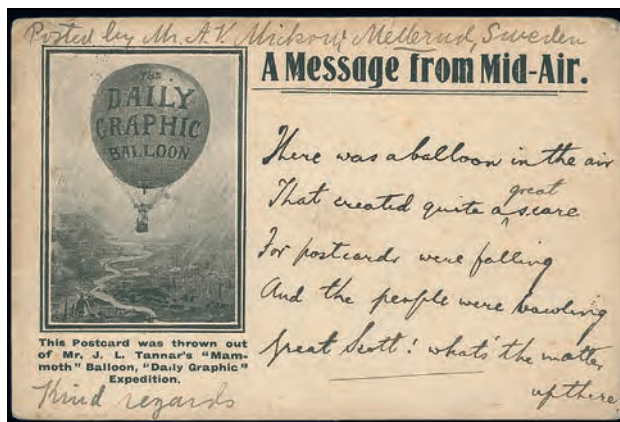 Posted by Mr. A. V. Mickow, Mellerud, Sweden
A Message from Mid-Air.
THE
DAILY
GRAPHIC
BALLOON
There was a balloon in the air
That created quite a great scare
For postcards were falling
And the people were bawling
Great Scott! what's the matter
up there
This Postcard was thrown out
of Mr. J. L. Tannar's "Mam-
moth" Balloon, "Daily Graphic"
Expedition.
Kind regards